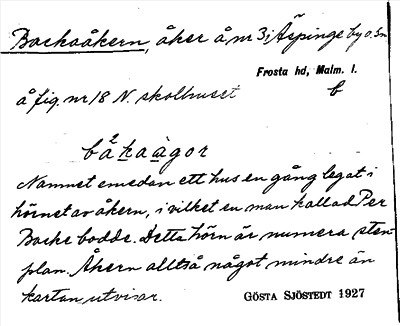 Backaåkern, åker å nr 3 i Äspinge by o. sn
Frosta hd, Malm. l.
å fig. nr 18 N. skolhuset b
Namnet emedan ett hus en gång legat i
hörnet av åkern, i vilket en man kallad Per
Backe bodde. Detta hörn är numera sten-
plan. Åkern alltså något mindre än
kartan utvisar.
GÖSTA SJÖSTEDT 1927